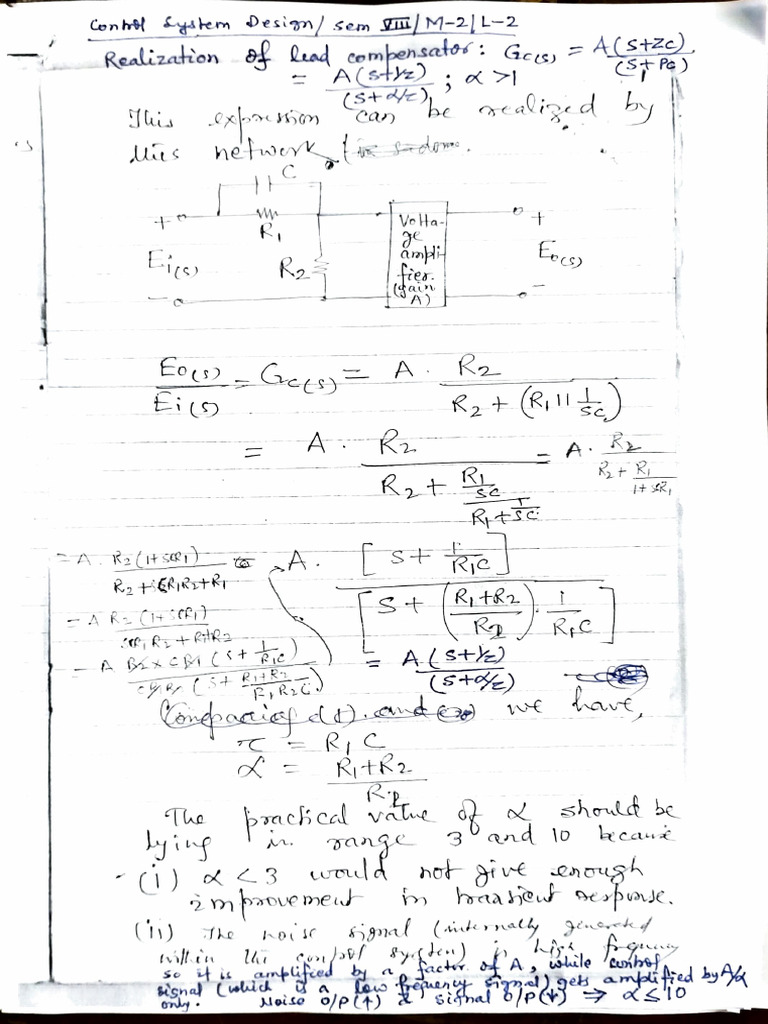 Control System Design/ sem VIII/ M-2/ L-2
Realization of lead compensator: Gc(s) = A(s+Zc)/(s+Pc)
= A(s+1/τ)/(s+α/τ) ; α >1
This expression can be realized by
this network
C
+ R1 Volta- +
ge
Ei(s) R2 ampli- Eo(s)
fier.
- (gain -
A)
Eo(s)/Ei(s) = Gc(s) = A . R2/(R2 + (R1 || 1/sc))
= A . R2/(R2 + (R1/sc)/(R1+1/sc)) = A . R2/(R2 + R1/(1+sCR1))
= A . R2(1+sCR1)/(R2+sCR1R2+R1) = A . [s + 1/R1C]/[s + ((R1+R2)/R2) . 1/R1C]
= A R2 (1+sCR1)/(sCR1R2+R1+R2)
= A R2 x CR1 (s + 1/R1C)/(CR1R2 (s + (R1+R2)/(R1R2C))) = A.(s+1/τ)/(s+α/τ)
we have,
τ = R1C
α = (R1+R2)/R2
The practical value of α should be
lying in range 3 and 10 because
- (i) α <3 would not give enough
improvement in transient response.
(ii) The noise signal (internally generated
within the control system) is high frequency
so it is amplified by a factor of A, while control
signal (which is a low frequency signal) gets amplified by A/α
only. Noise O/P(↑) & signal O/P(↓) ⇒ α ≤ 10